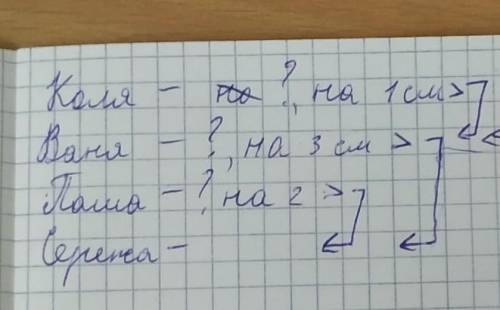 Коля - ?, на 1 см >
Ваня - ?, на 3 см >
Паша - ? на 2 >
Сережа -